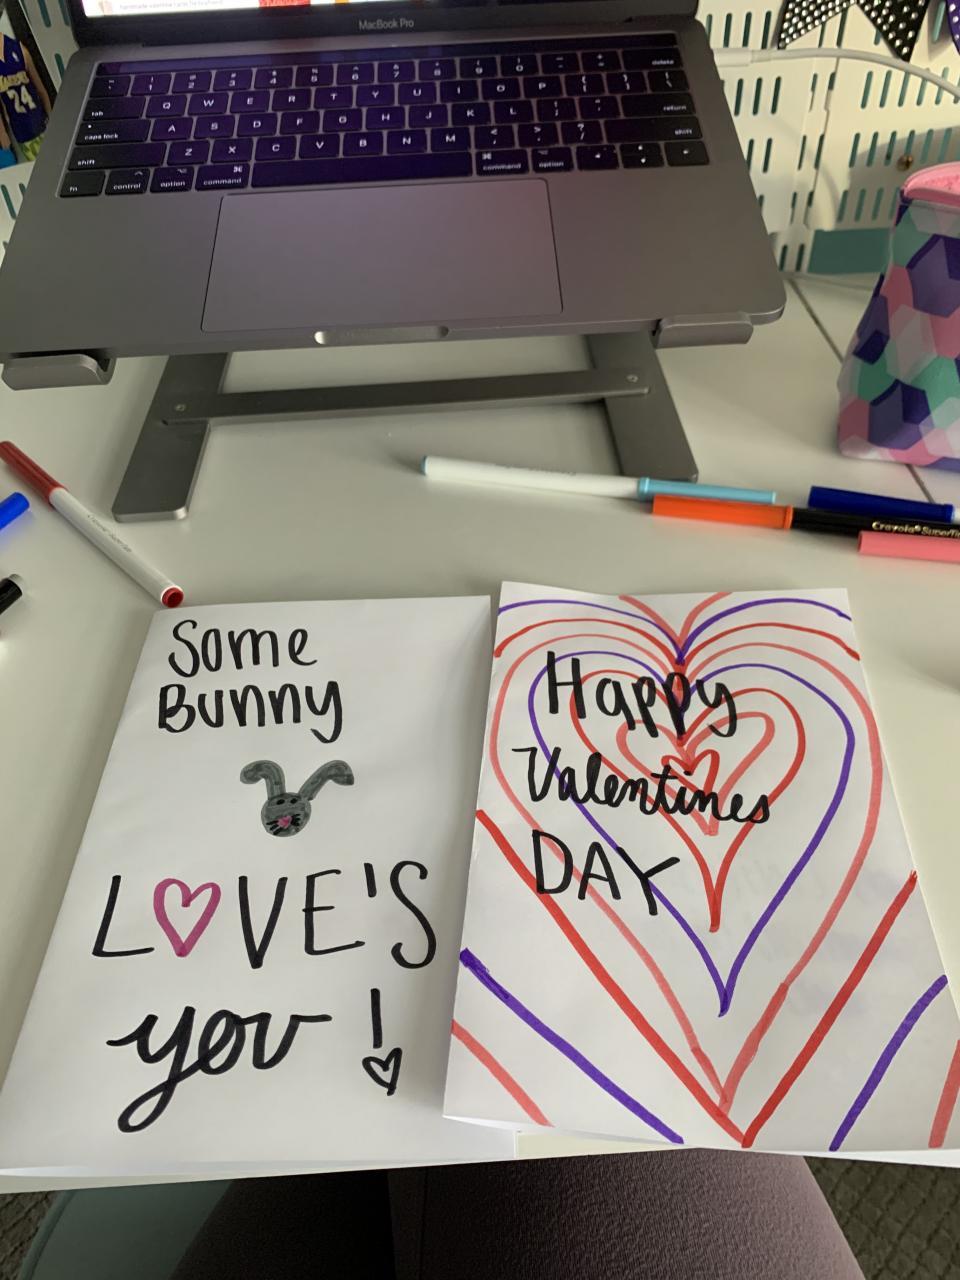 MacBook Pro
delete
tab
Q W E R T Y U I O P
caps lock
A S D F G H J K L
return
shift
Z X C V B N M
shift
fn
control
option
command
command
option
24
Crayola SuperTips
Some
Bunny
L♡VE'S
you!
Happy
Valentines
DAY